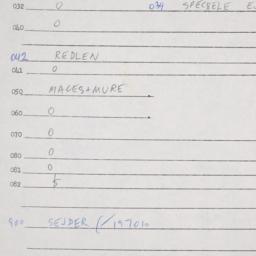 032 0 034 SPECBELE E
040 0
042 REDLEN
041 0
050 MACES+MURE
060 0
070 0
080 0
081 0
082 5
900 SEJDER (/197010